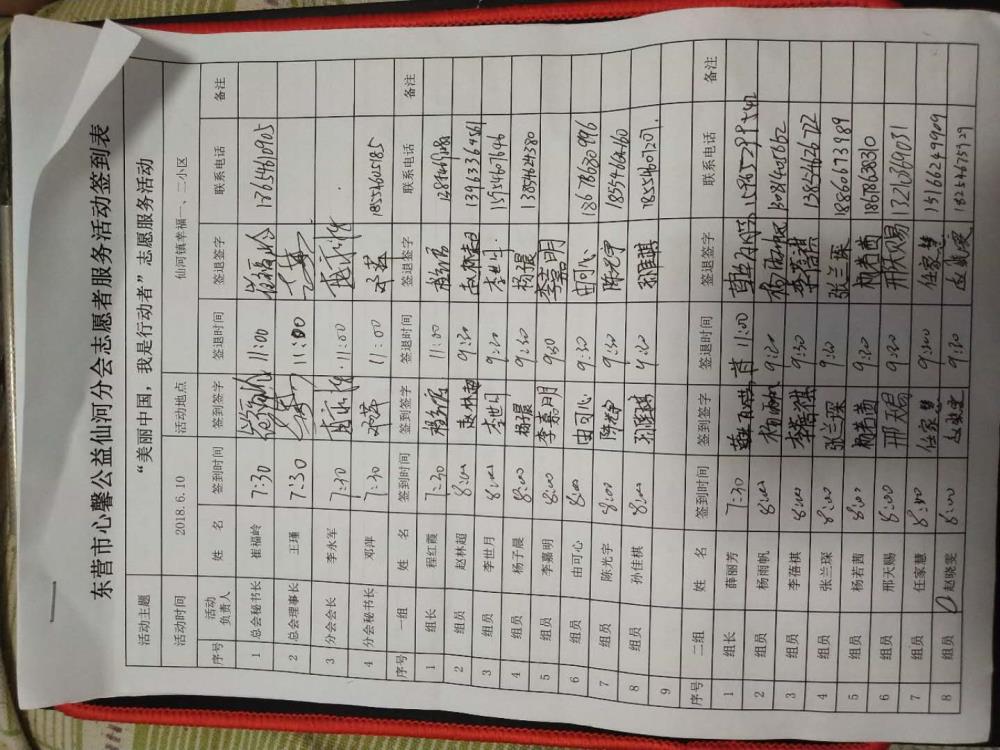 东营市心馨公益仙河分会志愿者服务活动签到表
活动主题 “美丽中国，我是行动者”志愿服务活动
活动时间 2018.6.10 活动地点 仙河镇幸福一、二小区
序号 活动负责人 姓 名 签到时间 签到签字 签退时间 签退签字 联系电话 备注
1 总会秘书长 崔福岭 7:30 崔福岭 11:00 崔福岭
2 总会理事长 王瑾 7:30 11:00
3 分会会长 李永军 7:30 11:00
4 分会秘书长 邓萍 7:30 邓萍 11:00 邓萍 18554605185
序号 一组 姓 名 签到时间 签到签字 签退时间 签退签字 联系电话 备注
1 组长 程红霞 7:30 11:00
2 组员 赵林超 8:00 赵林超 9:30 赵林超 13963364561
3 组员 李世月 8:00 李世月 9:30 李世月 15954607646
4 组员 杨子晨 8:00 杨晨 9:30 杨晨 13854624380
5 组员 李嘉明 8:00 李嘉明 930 李嘉明
6 组员 由可心 8:00 由可心 9:30 由可心 18678630996
7 组员 陈光宇 8:00 陈光宇 9:30 陈光宇 18554602460
8 组员 孙佳棋 8:00 孙佳棋 9:30 孙佳棋 18554607207.
9
序号 二组 姓 名 签到时间 签到签字 签退时间 签退签字 联系电话 备注
1 组长 薛丽芳 7:30 薛丽芳 11:00 薛丽芳
2 组员 杨雨帆 8:00 杨雨帆 9:30 杨雨帆
3 组员 李蓓棋 8:00 李蓓棋 9:30 李蓓棋 13854626722
4 组员 张兰琛 8:00 张兰琛 9:30 张兰琛 18866673989
5 组员 杨若茜 8:00 杨若茜 9:30 杨若茜 18678638310
6 组员 邢天赐 8:00 邢天赐 9:30 邢天赐
7 组员 任家慧 8:00 任家慧 9:00 任家慧 15166249909
8 组员 赵晓雯 8:00 赵晓雯 9:30 赵晓雯 18254675929